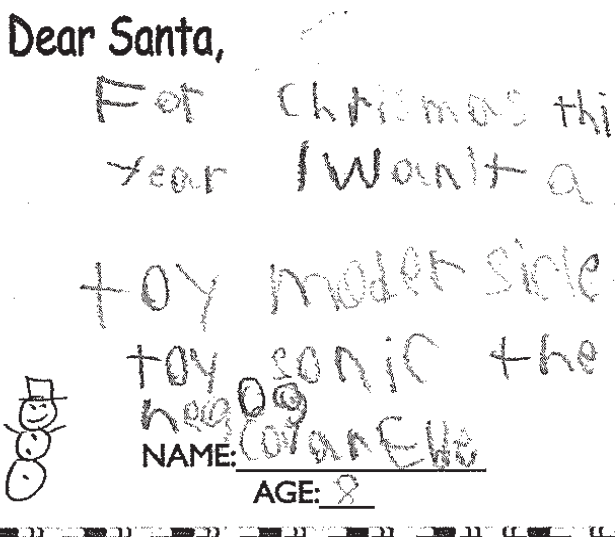 Dear Santa,
For Chrismas thi
year I Want a
toy moder sicle
toy sonic the
NAME:
AGE: 8